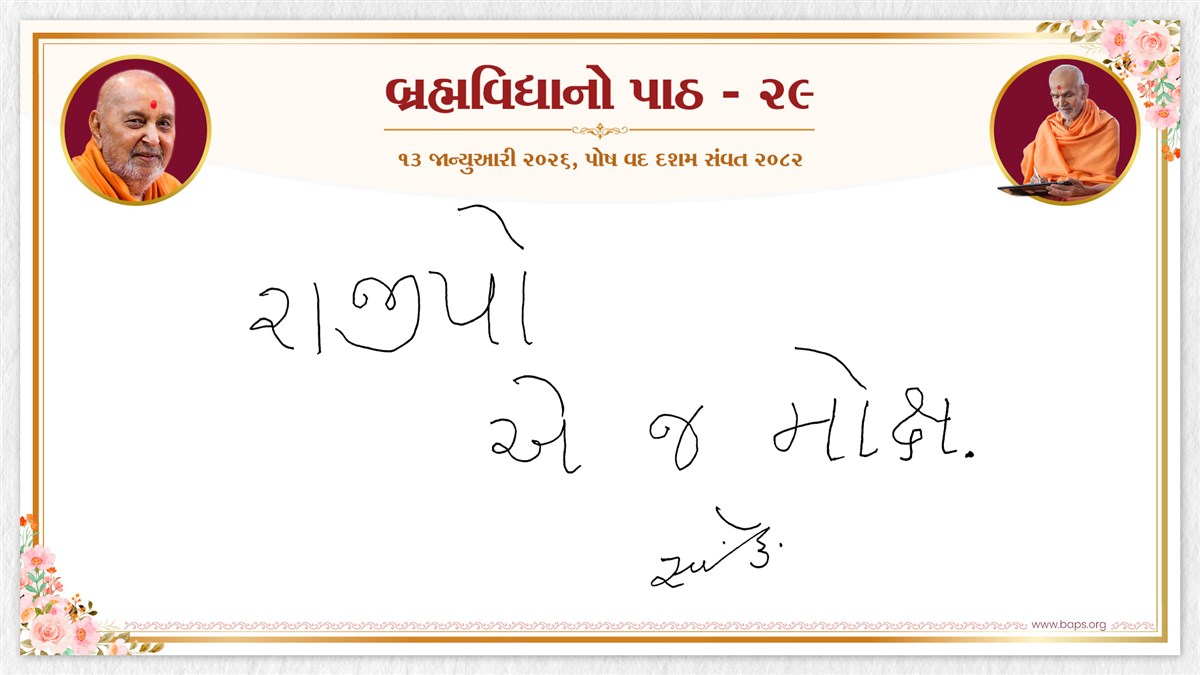 બ્રહ્મવિદ્યાનો પાઠ - ૨૯
૧૩ જાન્યુઆરી ૨૦૨૬, પોષ વદ દશમ સંવત ૨૦૮૨
રાજીપો
એ જ મોક્ષ.
www.baps.org